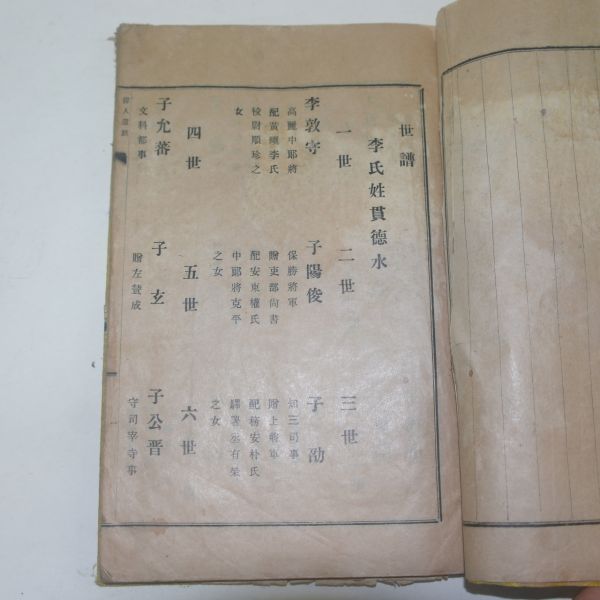 世譜
李氏姓貫德水
一世
二世
三世
李敦守
高麗中郎將
配黃驪李氏
校尉順珍之
女
子陽俊
保勝將軍
贈吏部尙書
配安東權氏
中郎將克平
之女
子劭
知三司事
贈上將軍
配務安朴氏
之女
四世
五世
六世
子允蕃
文科都事
子玄
贈左贊成
子公晋
守司宰寺事
一